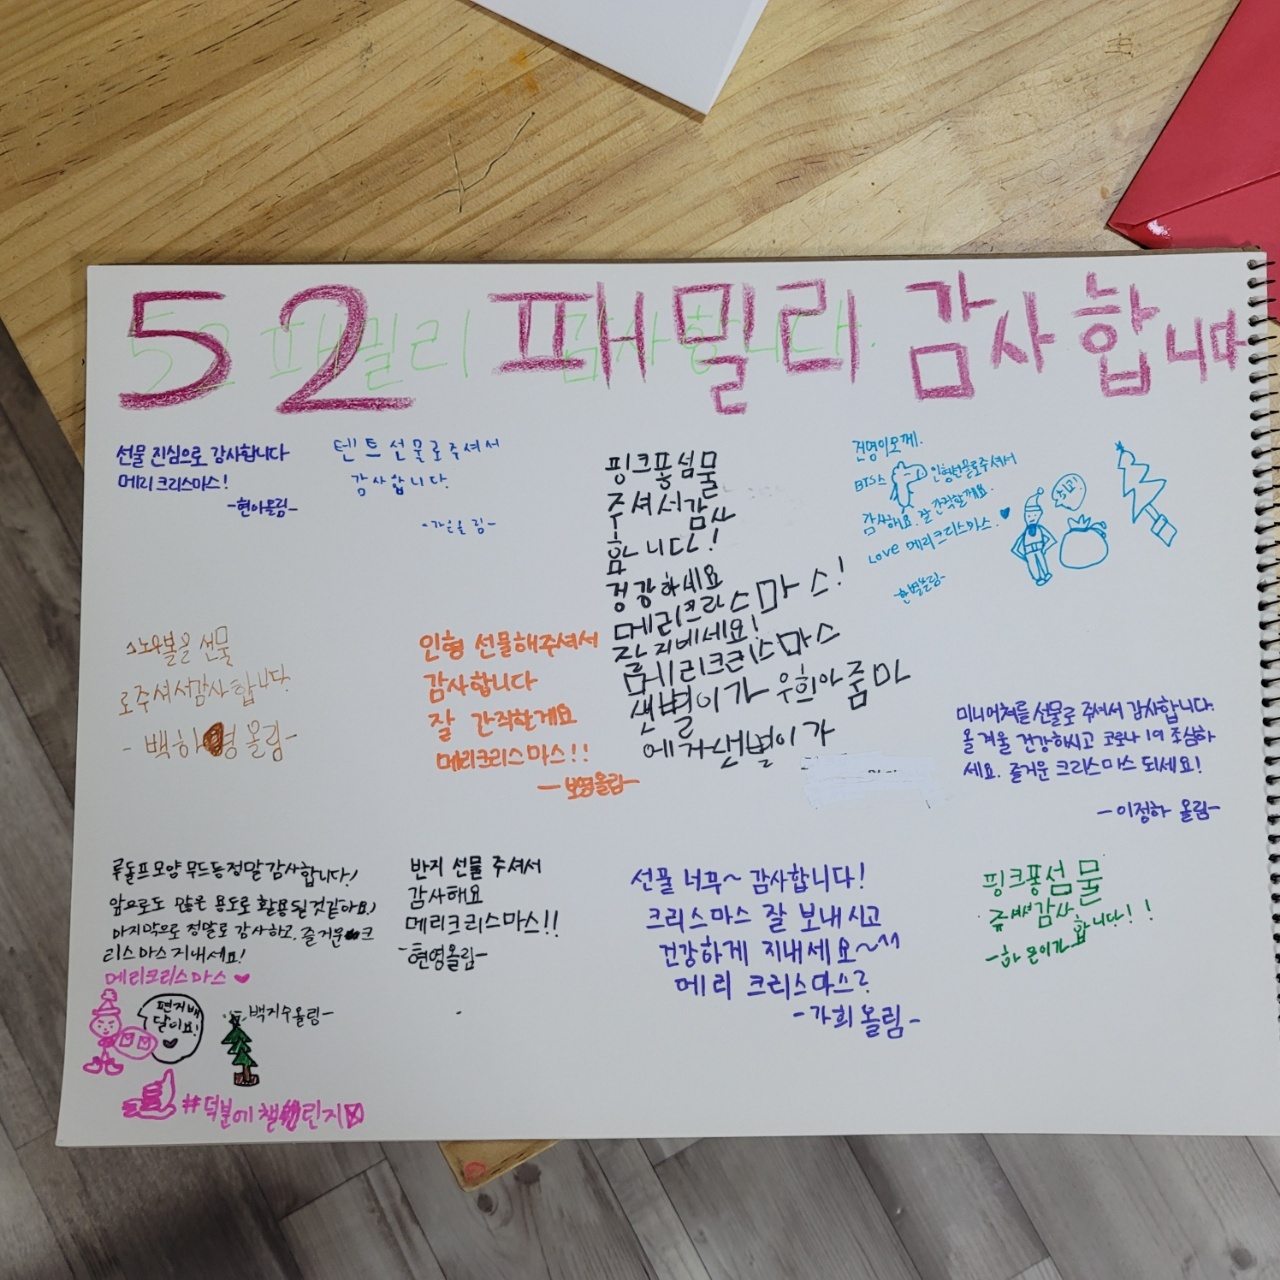 52 패밀리 감사합니다
선물 진심으로 감사합니다
메리 크리스마스!
-현아올림-
텐트 선물로주셔서
감사합니다.
-가은올림-
핑크퐁섬물
주셔서감사
합니다!
겅강하세요
메리크리스마스!
잘지베세요!
메리크리스마스
샌별이가 우희아줌마
에게샌별이가
진명이모께.
BTS
인형선물로주셔서
감사해요. 잘 간직할께요.
LOVE 메리크리스마스. ♥
한별올림-
스노우볼을 선물
로주셔서감사합니다.
-백하영 올림-
인형 선물해주셔서
감사합니다
잘 간직한게요
메리크리스마스!!
-보영올림-
미니어쳐를 선물로 주셔서 감사합니다.
올 겨울 건강하시고 코로나 19 조심하
세요. 즐거운 크리스마스 되세요!
-이정하 올림-
루돌프모양 무드등정말감사합니다!
앞으로도 많은 용도로 활용될것같아요!
마지막으로 정말로 감사하고, 즐거운 크
리스마스지내세요!
메리크리스마스 ♥
편지배
달이요!
-백지수올림-
#덕분에 챌린지
반지 선물 주셔서
감사해요
메리크리스마스!!
-현영올림-
선물 너무~ 감사합니다!
크리스마스 잘 보내시고
건강하게 지내세요~^^
메리 크리스마스?
-가희올림-
핑크퐁섬물
쥬셔서감사
합니다!!
-하온이가